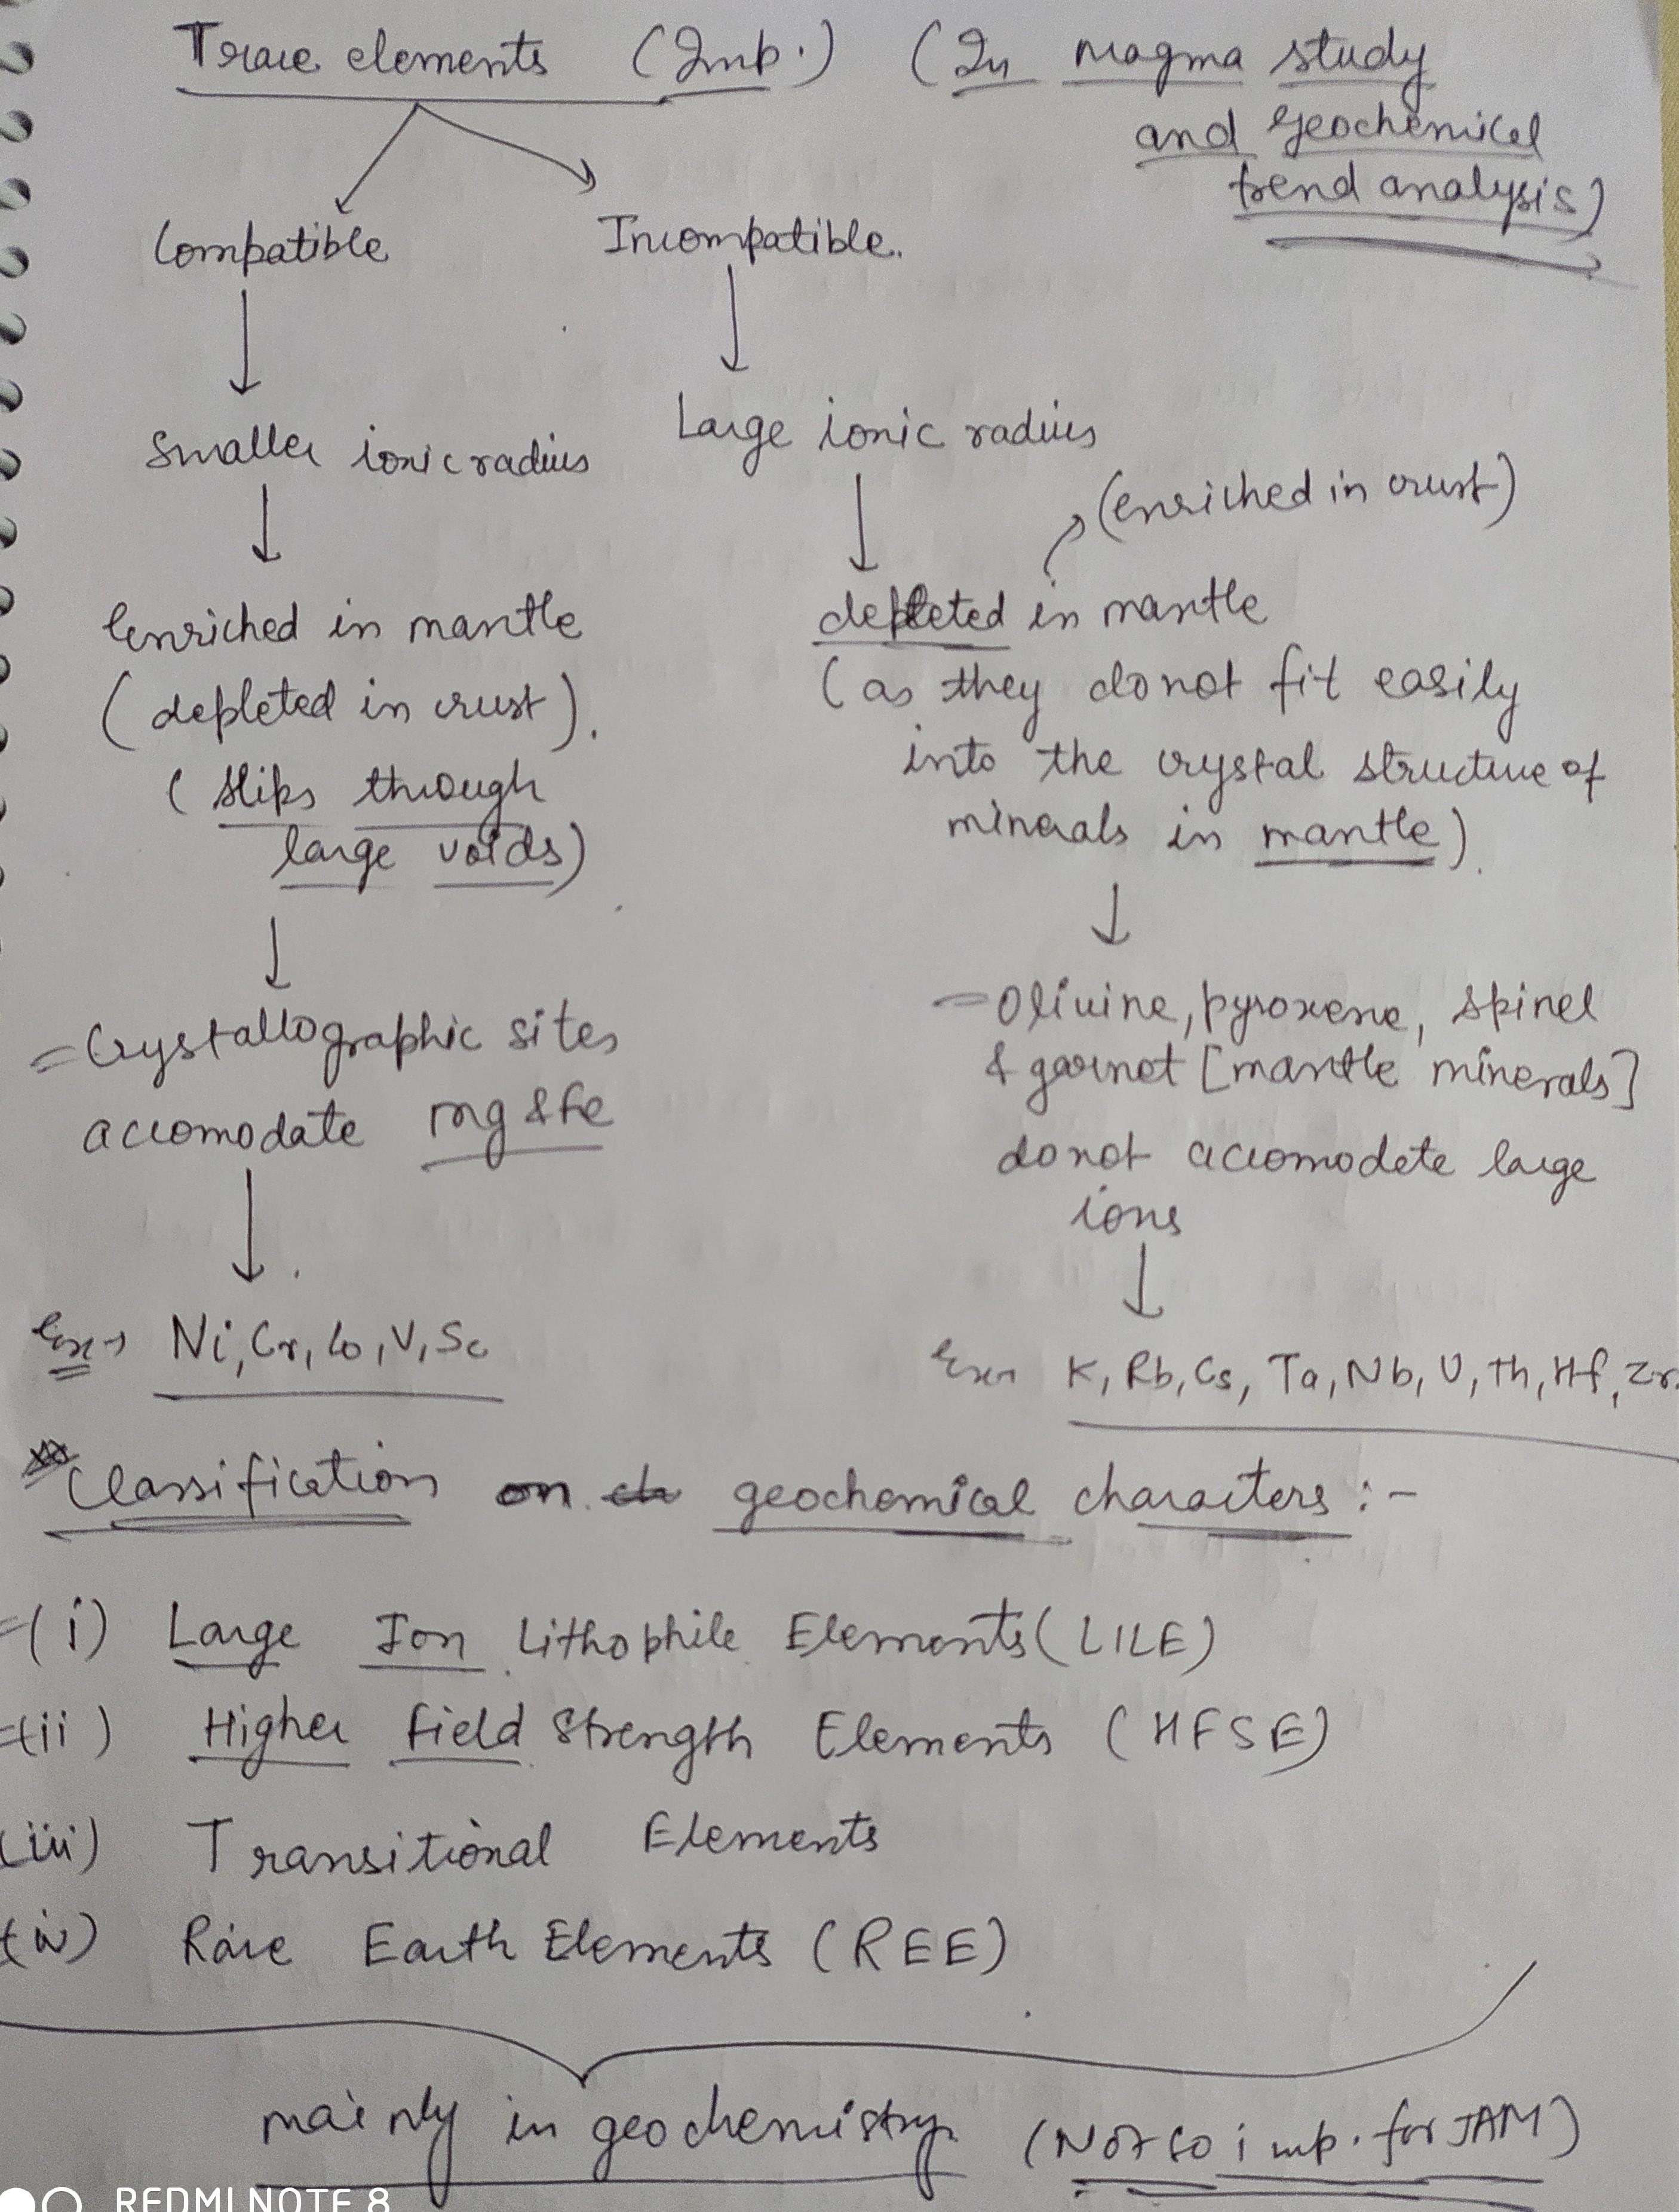 Trace elements (Imp.) (In magma study
and geochemical
trend analysis)
Compatible
Incompatible.
Smaller ionic radius
Large ionic radius
(enriched in crust)
Enriched in mantle
(depleted in crust).
(slips through
large voids)
depleted in mantle
(as they donot fit easily
into the crystal structure of
minerals in mantle).
= Crystallographic sites
accomodate mg & fe
= Olivine, pyroxene, spinel
& garnet [mantle minerals]
donot accomodate large
ions
Ex→ Ni, Cr, Co, V, Sc
Ex→ K, Rb, Cs, Ta, Nb, U, Th, Hf, Zr.
Classification on geochemical characters :-
(i) Large Ion Lithophile Elements (LILE)
(ii) Higher field Strength Elements (HFSE)
(iii) Transitional Elements
(iv) Rare Earth Elements (REE)
mainly in geochemistry (Not so imp. for JAM)
REDMI NOTE 8